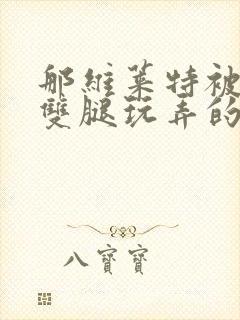 那維萊特被
雙腿玩弄的
八寶寶